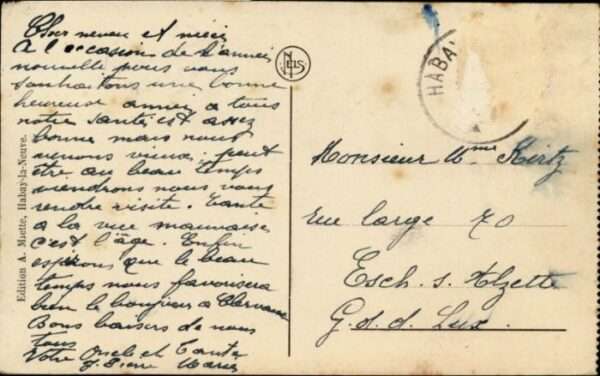 Cher neveu et nièce
A l'occasion de l'année
nouvelle nous vous
souhaitons une bonne
heureuse année a tous
notre santé est assez
bonne mais nous
venons vieux. peut
être au beau temps
viendrons nous vous
rendre visite. Tante
a la vue mauvaise
c'est l'âge. Enfin
espérons que le beau
temps nous favorisera
bien le bonjour a Clervaux
Bons baisers de nous
tous
Votre Oncle et Tante
J. Pierre Maria
Edition A. Miette, Habay-la-Neuve.
NELS
HABA
Monsieur Mme Kirtz
rue large 70
Esch. s. Alzette
G. d. d. Lux.